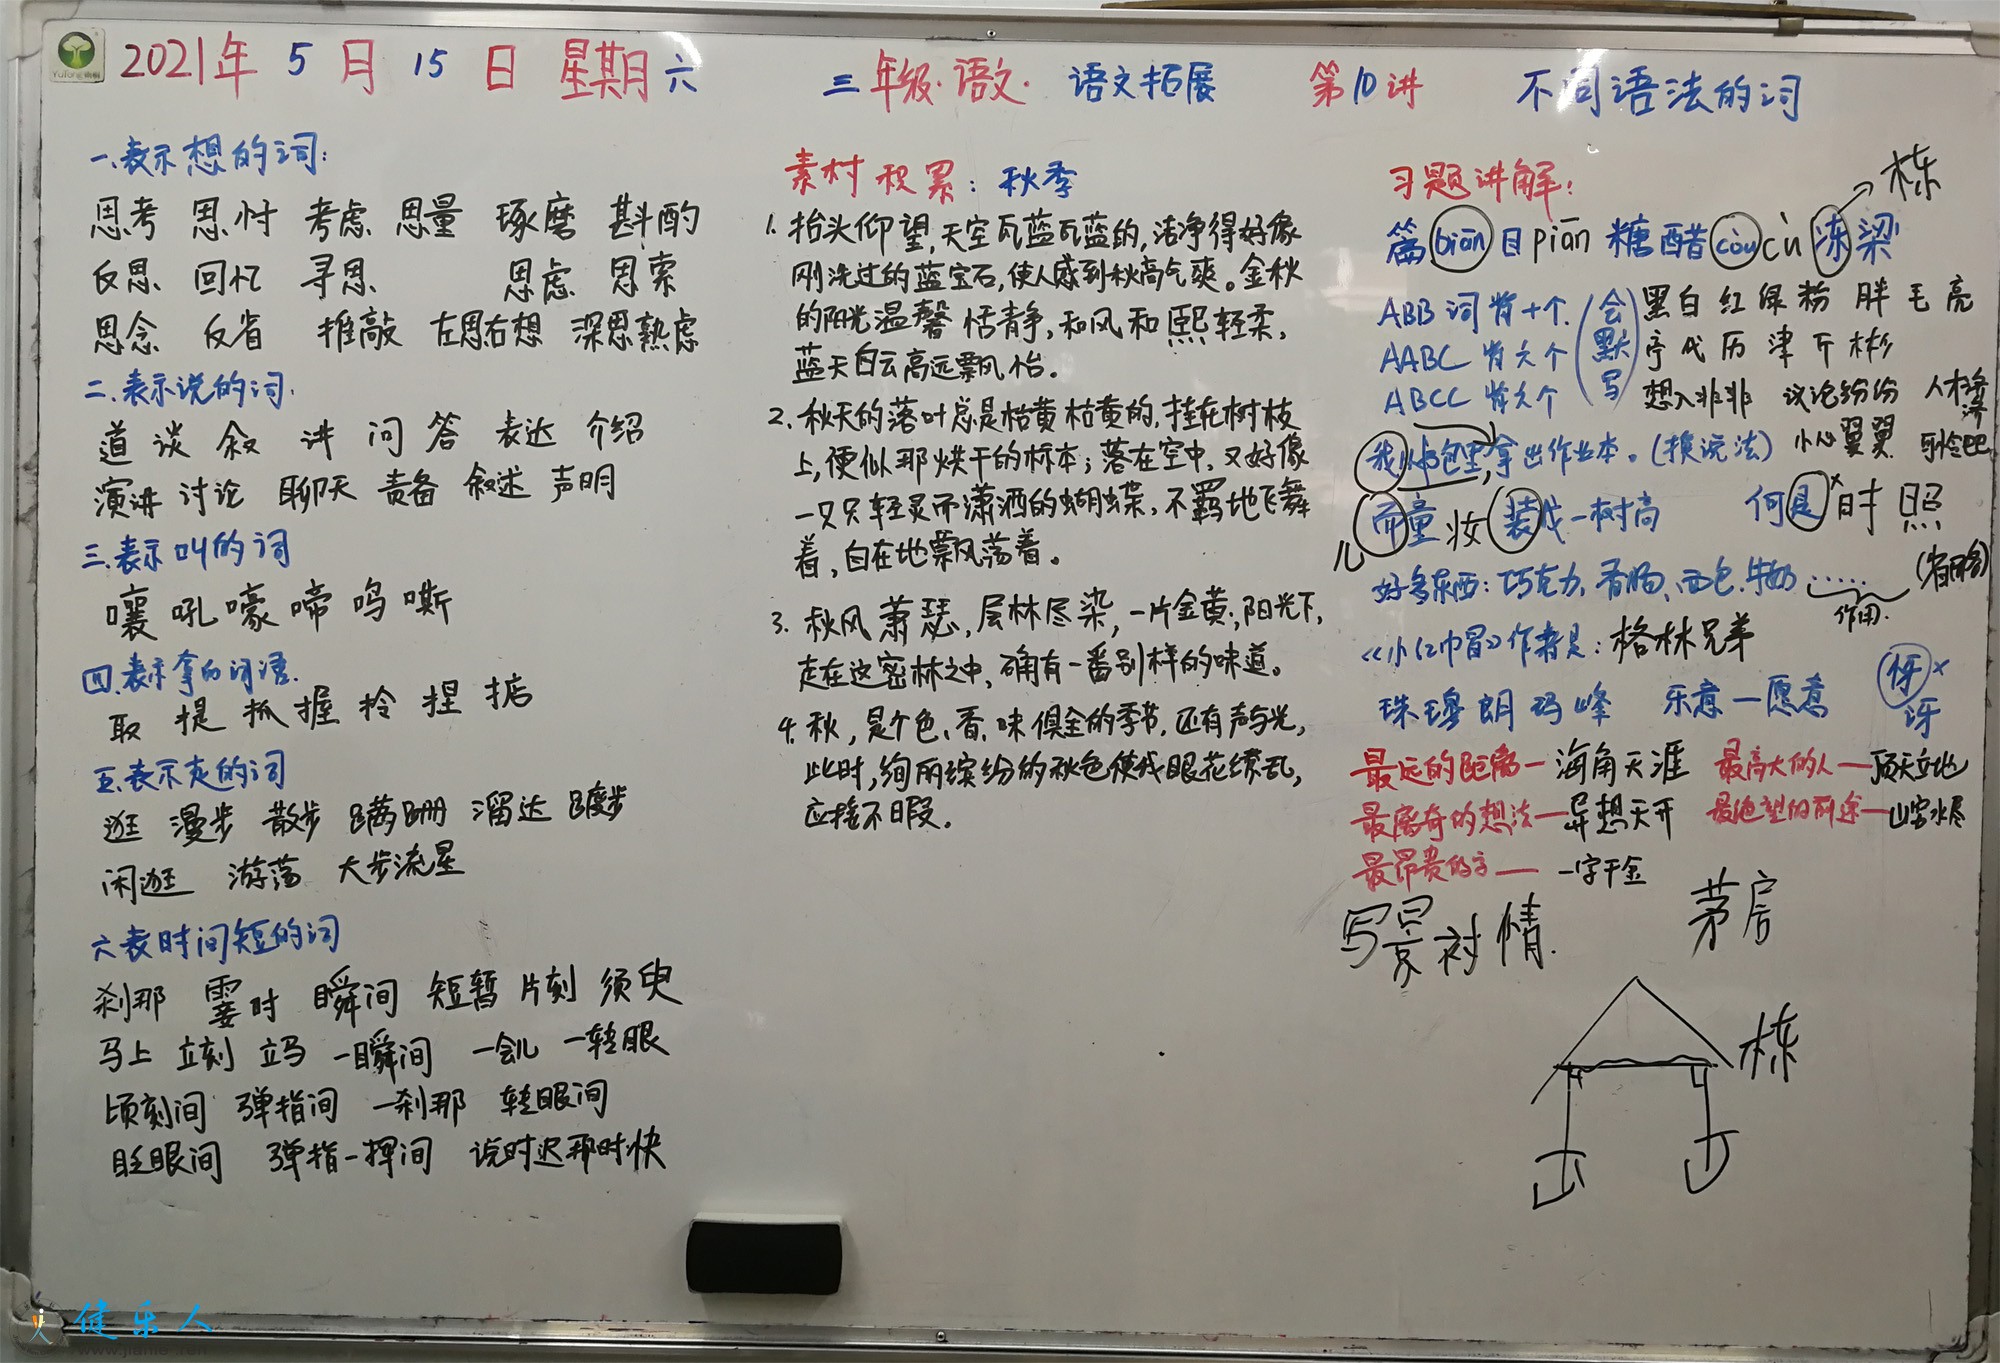 2021年 5 月 15 日 星期六 三年级·语文· 语文拓展 第10讲 不同语法的词
一.表示想的词:
思考 思忖 考虑 思量 琢磨 斟酌
反思 回忆 寻思 思虑 思索
思念 反省 推敲 左思右想 深思熟虑
二.表示说的词.
道 谈 叙 讲 问 答 表达 介绍
演讲 讨论 聊天 责备 叙述 声明
三.表示叫的词
嚷 吼 嚎 啼 鸣 嘶
四.表示拿的词语.
取 提 抓 握 拎 捏 掂
五.表示走的词
逛 漫步 散步 蹒跚 溜达 踱步
闲逛 游荡 大步流星
六表时间短的词
刹那 霎时 瞬间 短暂 片刻 须臾
马上 立刻 立马 一瞬间 一会儿 一转眼
顷刻间 弹指间 一刹那 转眼间
眨眼间 弹指一挥间 说时迟那时快
素材积累: 秋季
1. 抬头仰望,天空瓦蓝瓦蓝的,洁净得好像
刚洗过的蓝宝石,使人感到秋高气爽。金秋
的阳光温馨恬静,和风和熙轻柔,
蓝天白云高远飘怡.
2. 秋天的落叶总是枯黄枯黄的,挂在树枝
上,便似那烘干的标本;落在空中,又好像
一只只轻灵而潇洒的蝴蝶,不羁地飞舞
着,自在地飘荡着。
3. 秋风萧瑟,层林尽染,一片金黄;阳光下,
走在这密林之中,确有一番别样的味道。
4. 秋,是个色、香、味俱全的季节,还有声与光,
此时,绚丽缤纷的秋色使我眼花缭乱,
应接不暇.
习题讲解:
栋
篇 biān 目 piān 糖醋 còu cù 冻梁
ABB 词背十个.
AABC 背六个
ABCC 背六个
(会默写)
黑白红绿粉 胖毛亮
序代历津斤彬
想入非非 议论纷纷 人才济济
小心翼翼 可怜巴巴
我从书包里拿出作业本。(换说法)
而童妆装成一树高 何是×时 照
儿
好多东西:巧克力、香肠、面包、牛奶 ……
(省略)
作用.
《小红帽》作者是: 格林兄弟
珠穆朗玛峰 乐意—愿意 伢× 讶
最远的距离— 海角天涯 最高大的人—顶天立地
最离奇的想法—异想天开 最绝望的前途—山穷水尽
最昂贵的字— 一字千金
写景衬情. 茅房
栋
YuTong
健乐人